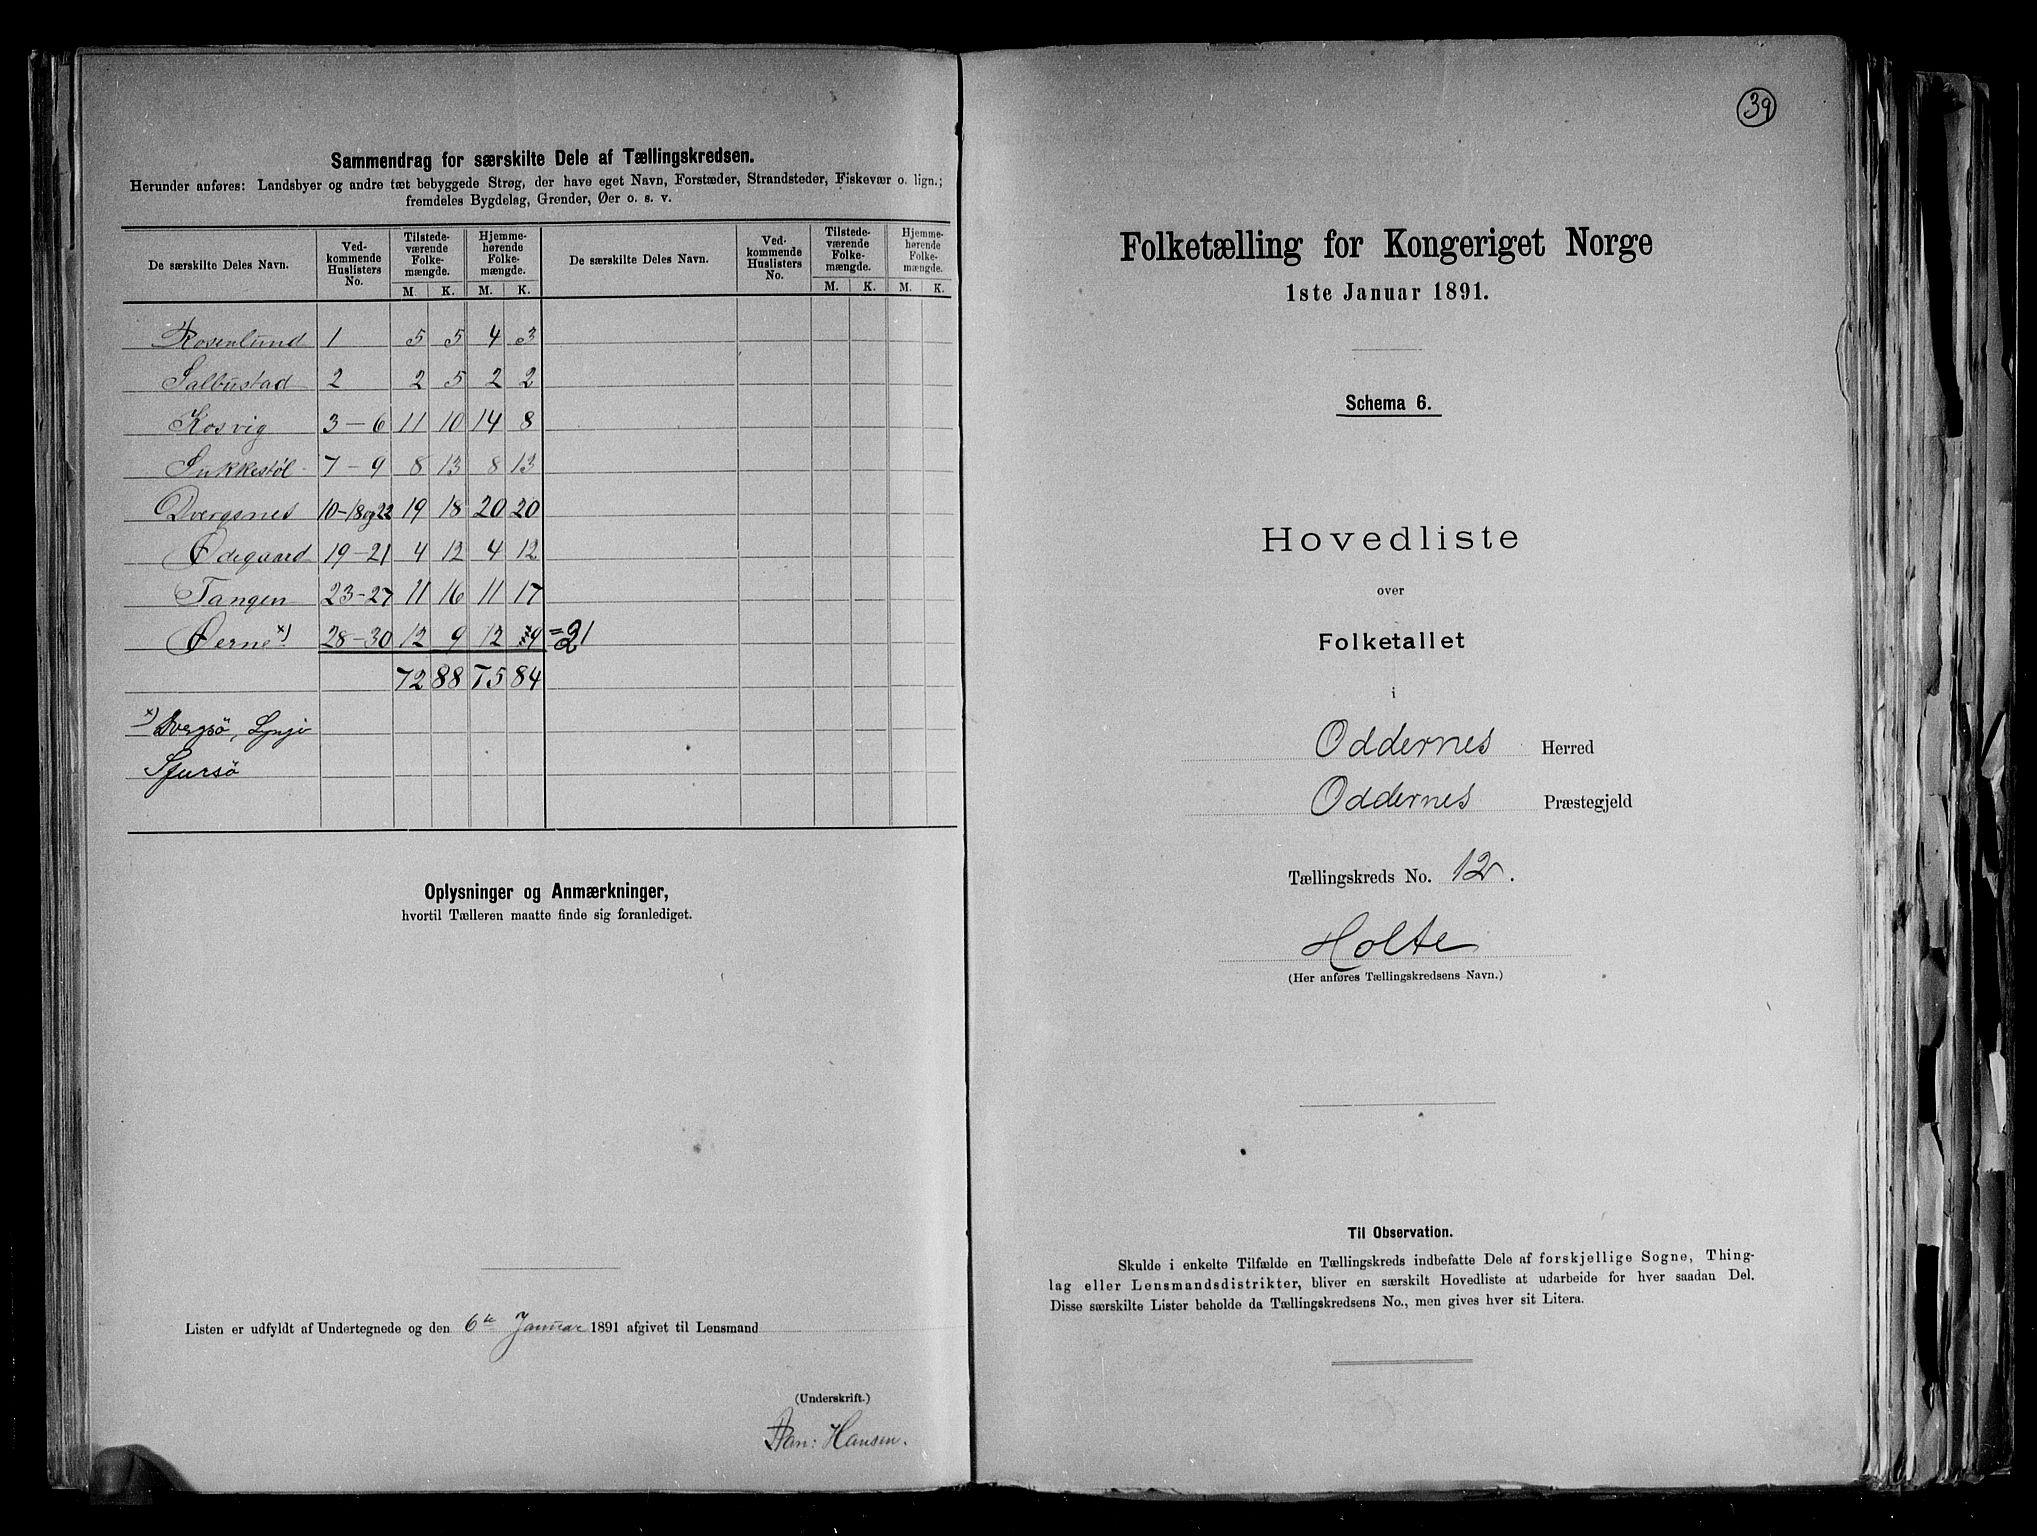 Sammendrag for særskilte Dele af Tællingskredsen.
Herunder anføres: Landsbyer og andre tæt bebyggede Strøg, der have eget Navn, Forstæder, Strandsteder, Fiskevær o. lign.;
fremdeles Bygdelag, Grender, Øer o. s. v.
De særskilte Deles Navn. Ved-kommende Huslisters No. Tilstede-værende Folke-mængde. Hjemme-hørende Folke-mængde. De særskilte Deles Navn. Ved-kommende Huslisters No. Tilstede-værende Folke-mængde. Hjemme-hørende Folke-mængde.
M. K. M. K. M. K. M. K.
Rosenlund 1 5 5 4 3
Salbustad 2 2 5 2 2
Kosvig 3-6 11 10 14 8
Sukkestøl 7-9 8 13 8 13
Dvergsnes 10-18og22 19 18 20 20
Ødegaard 19-21 4 12 4 12
Tangen 23-27 11 16 11 17
Øerne x) 28-30 12 9 12 9 =21
72 88 75 84
x) Dvergsø,
Oplysninger og Anmærkninger,
hvortil Tælleren maatte finde sig foranlediget.
Listen er udfyldt af Undertegnede og den 6te Januar 1891 afgivet til Lensmand
(Underskrift.)
Dan: Hansen.
39
Folketælling for Kongeriget Norge
1ste Januar 1891.
Schema 6.
Hovedliste
over
Folketallet
i
Oddernes Herred
Oddernes Præstegjeld
Tællingskreds No. 12.
Holte
(Her anføres Tællingskredsens Navn.)
Til Observation.
Skulde i enkelte Tilfælde en Tællingskreds indbefatte Dele af forskjellige Sogne, Thing-
lag eller Lensmandsdistrikter, bliver en særskilt Hovedliste at udarbeide for hver saadan Del.
Disse særskilte Lister beholde da Tællingskredsens No., men gives hver sit Litera.